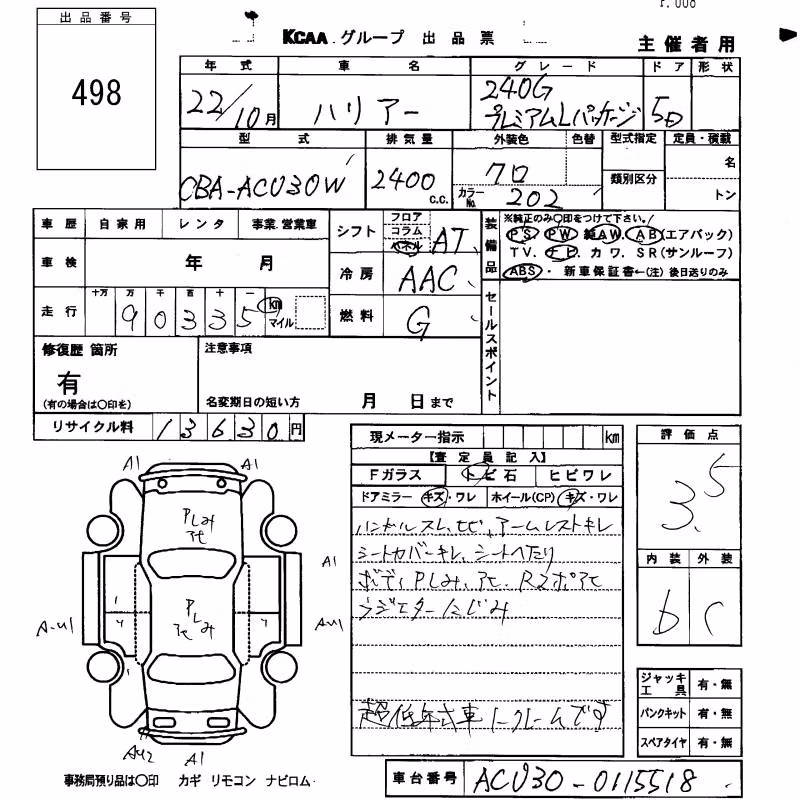 出品番号
498
KCAA グループ 出品票
主催者用
年式 車名 グレード ドア 形状
22/10月 ハリアー 240G プレミアムLパッケージ 5D
型式 排気量 外装色 色替 型式指定 定員・積載
CBA-ACU30W 2400 c.c. クロ 類別区分 名
カラーNo. 202 トン
車歴 自家用 レンタ 事業.営業車
車検 年 月
走行 十万 万 千 百 十 一
90335 km マイル
シフト フロア コラム パネル AT
冷房 AAC
燃料 G
装備品 ※純正のみ〇印をつけて下さい。
PS. PW. 純AW. AB(エアバック)
TV. ナビ. カワ. SR(サンルーフ)
ABS・ 新車保証書←(注) 後日送りのみ
セールスポイント
修復歴 箇所 注意事項
有
(有の場合は〇印を) 名変期日の短い方 月 日まで
リサイクル料 13630円
現メーター指示 km
【査定員記入】
Fガラス トビ石 ヒビワレ
ドアミラー キズ・ワレ ホイール(CP) キズ・ワレ
ハンドルスレ、ヒビ、アームレストキレ
シートカバーキレ、シートへたり
ボディPしみ、アセ、Rスポアセ
ラジエターにじみ
超低年式車ノークレームです
評価点
3.5
内装 外装
b C
ジャッキ工具 有・無
パンクキット 有・無
スペアタイヤ 有・無
A1 A1
Pしみ
アセ
A1
Pしみ
アセ
A-U1 AU1
AU2 A1
事務局預り品は〇印 カギ リモコン ナビロム
車台番号 ACU30-0115518